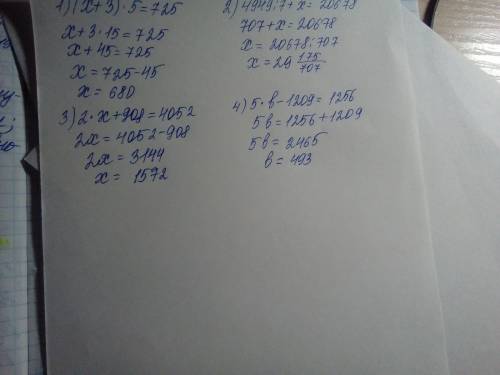 1) (x+3)·5=725
x+3·15=725
x+45=725
x=725-45
x=680
2) 4949:7+x=20678
707+x=20678
x=20678:707
x=29 175/707
3) 2·x+908=4052
2x=4052-908
2x=3144
x=1572
4) 5·в-1209=1256
5в=1256+1209
5в=2465
в=493